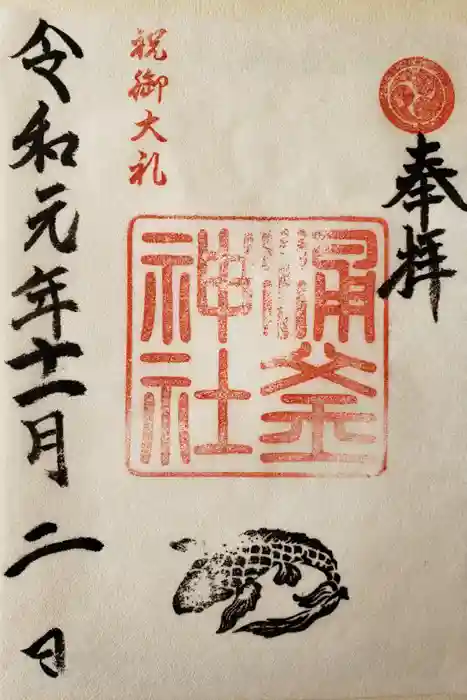 奉拝
祝御大礼
湧釜神社
令和元年十一月二日